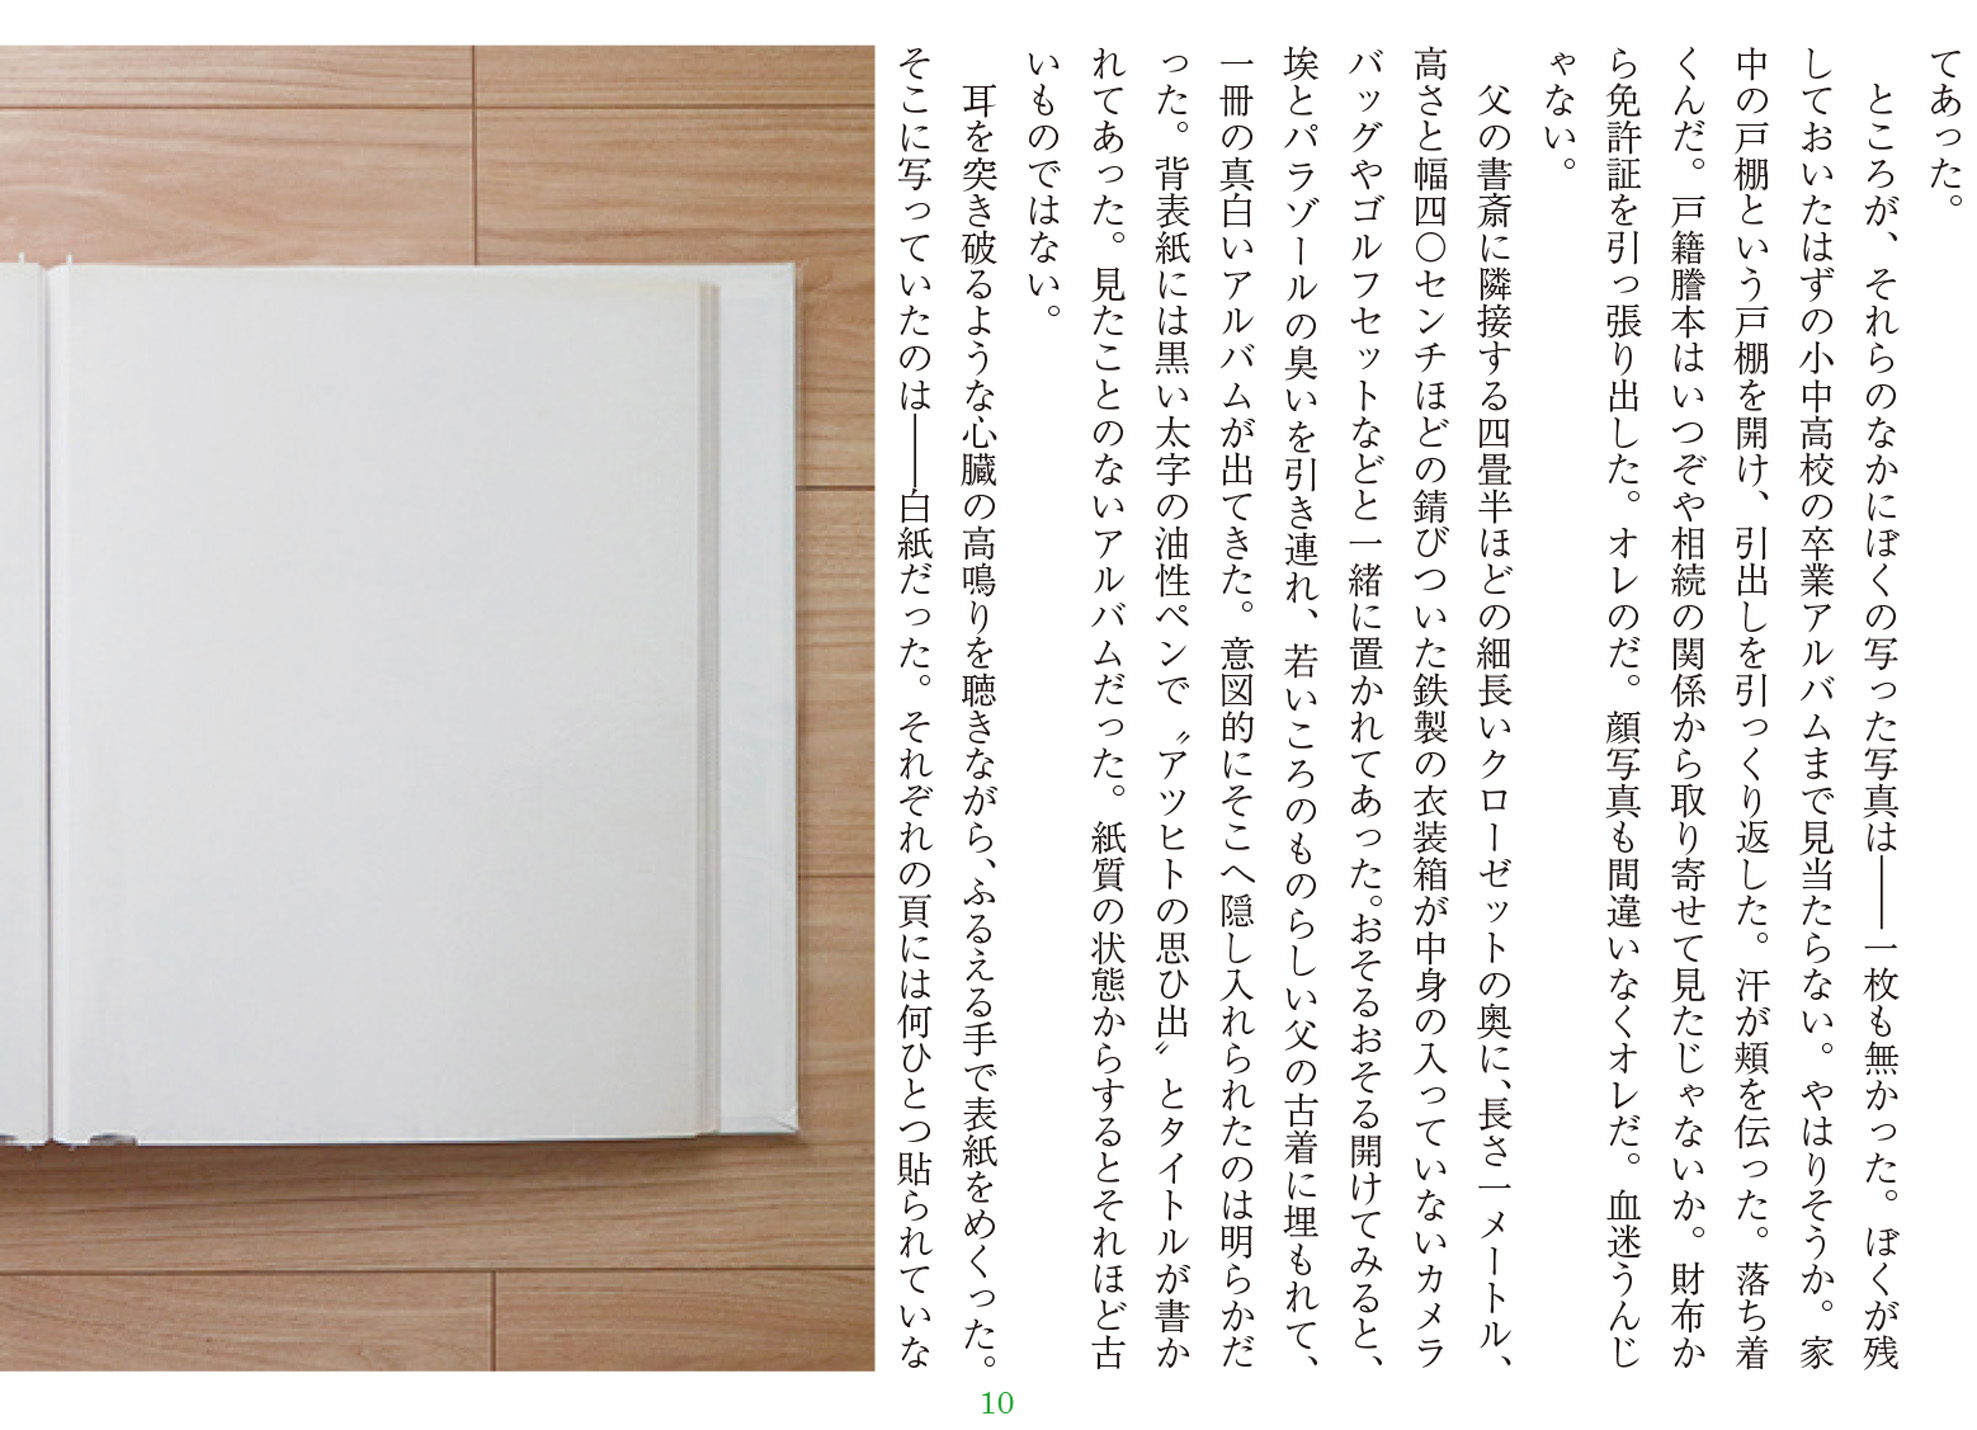 てあった。
ところが、それらのなかにぼくの写った写真は――一枚も無かった。ぼくが残
しておいたはずの小中高校の卒業アルバムまで見当たらない。やはりそうか。家
中の戸棚という戸棚を開け、引出しを引っくり返した。汗が頬を伝った。落ち着
くんだ。戸籍謄本はいつぞや相続の関係から取り寄せて見たじゃないか。財布か
ら免許証を引っ張り出した。オレのだ。顔写真も間違いなくオレだ。血迷うんじ
ゃない。
父の書斎に隣接する四畳半ほどの細長いクローゼットの奥に、長さ一メートル、
高さと幅四〇センチほどの錆びついた鉄製の衣装箱が中身の入っていないカメラ
バッグやゴルフセットなどと一緒に置かれてあった。おそるおそる開けてみると、
埃とパラゾールの臭いを引き連れ、若いころのものらしい父の古着に埋もれて、
一冊の真白いアルバムが出てきた。意図的にそこへ隠し入れられたのは明らかだ
った。背表紙には黒い太字の油性ペンで〝アツヒトの思ひ出〟とタイトルが書か
れてあった。見たことのないアルバムだった。紙質の状態からするとそれほど古
いものではない。
耳を突き破るような心臓の高鳴りを聴きながら、ふるえる手で表紙をめくった。
そこに写っていたのは――白紙だった。それぞれの頁には何ひとつ貼られていな
10